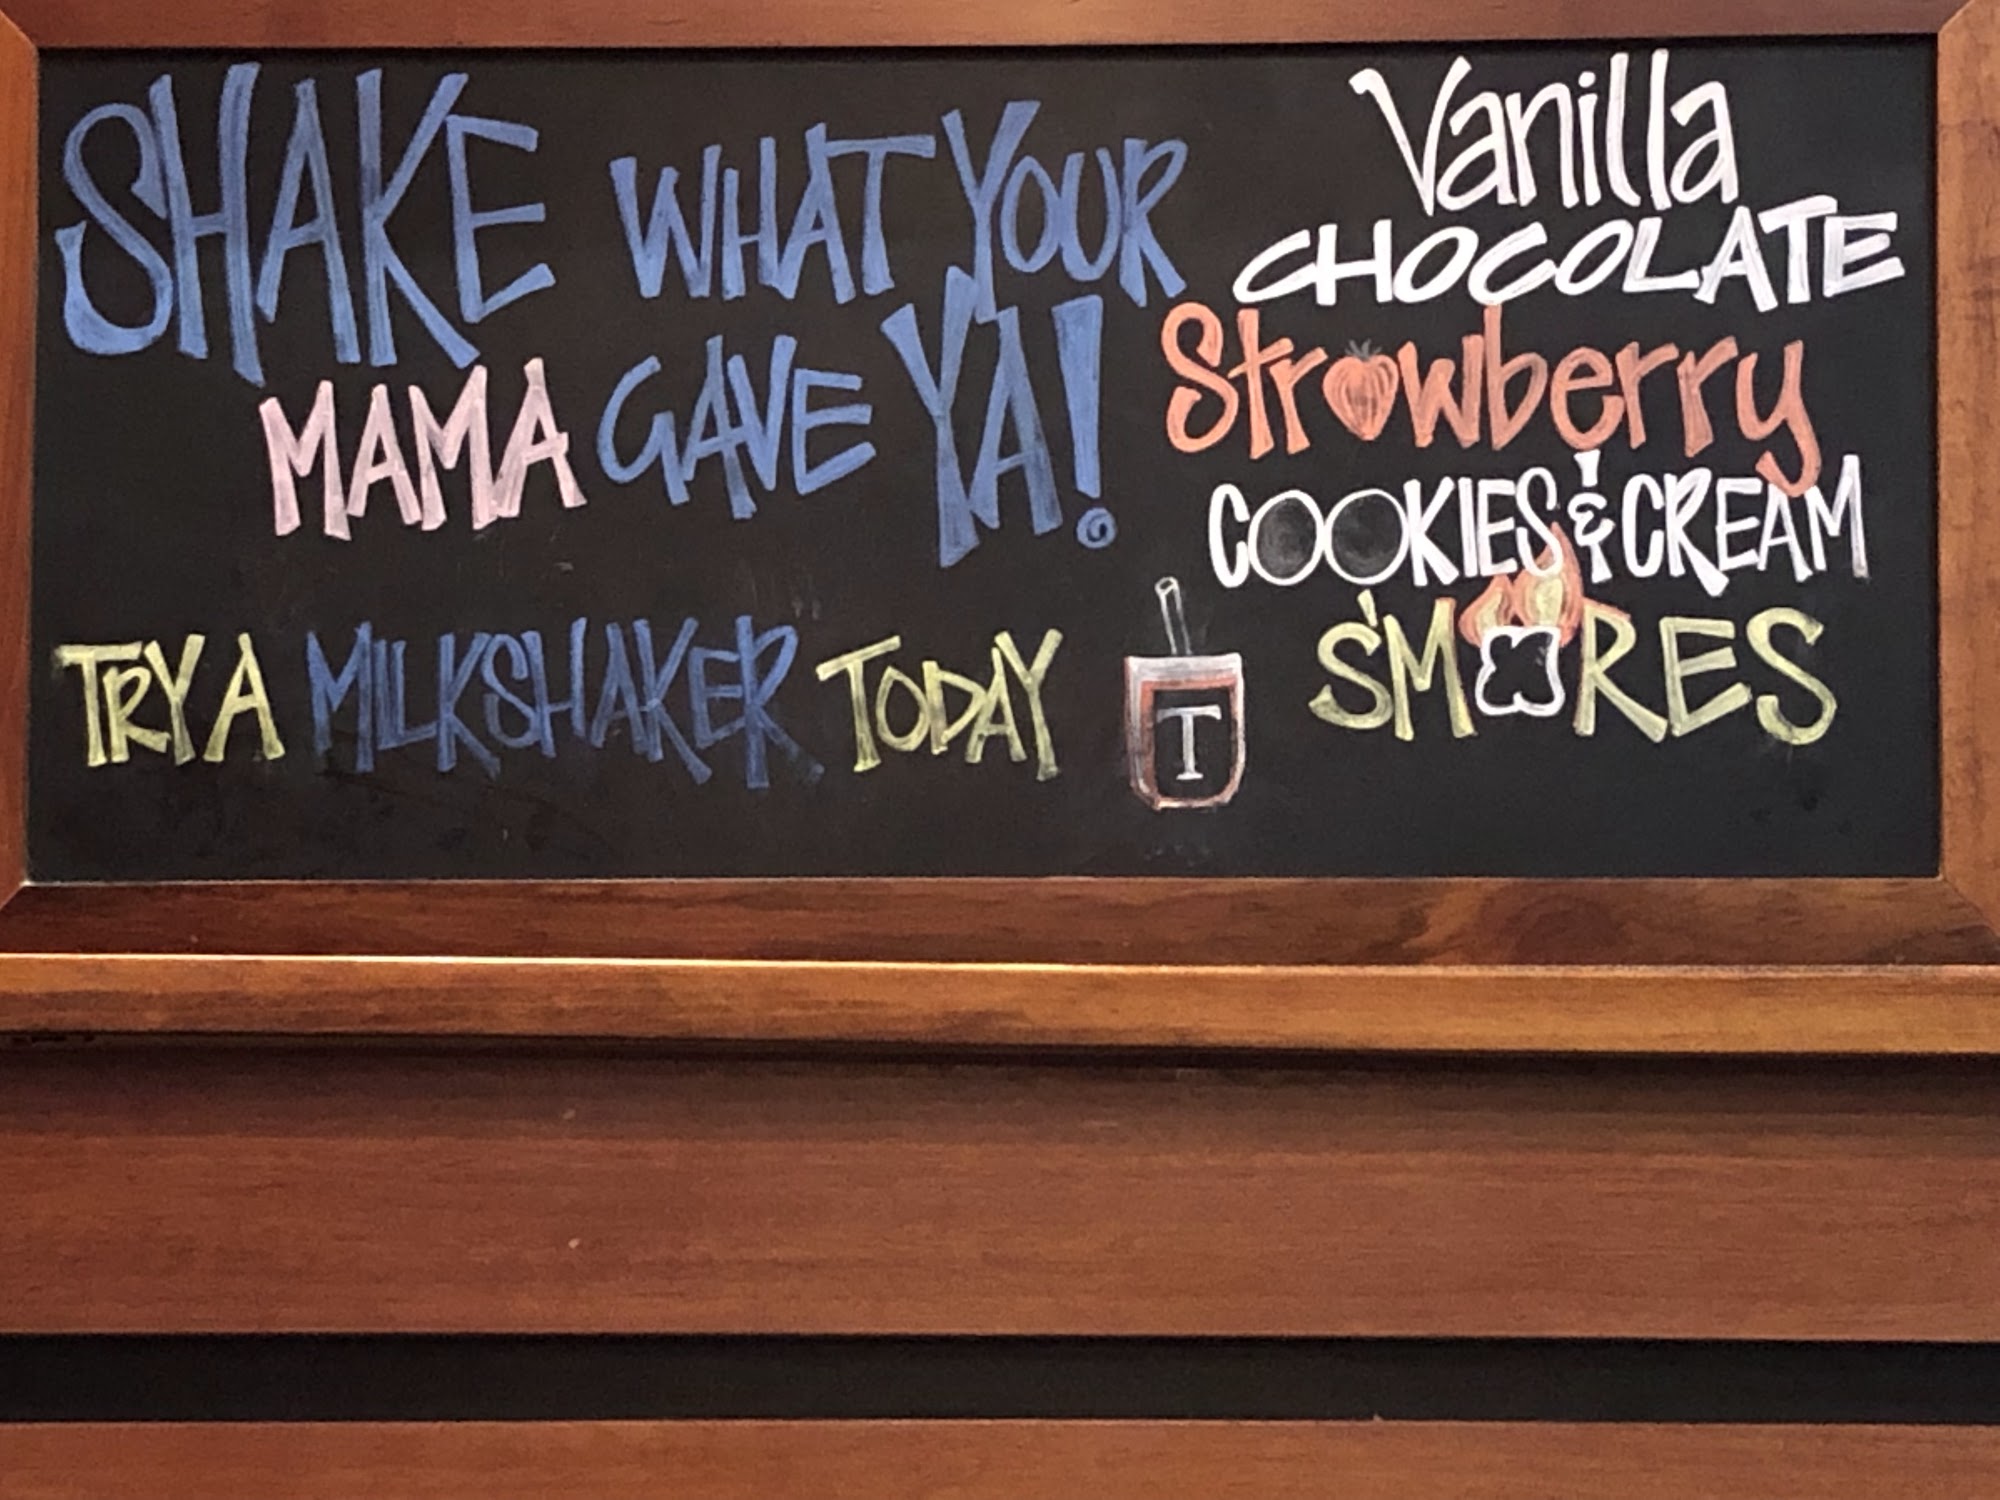 SHAKE WHAT YOUR
MAMA GAVE YA!
TRY A MILKSHAKER TODAY
T
Vanilla
CHOCOLATE
Strawberry
COOKIES & CREAM
S'MORES